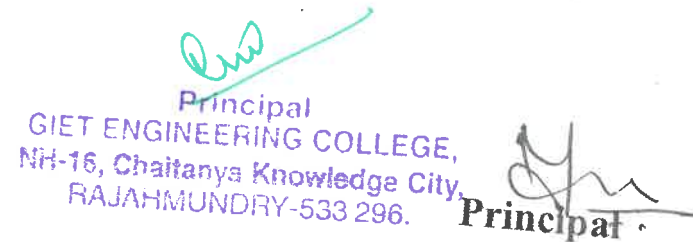 Principal
GIET ENGINEERING COLLEGE,
NH-16, Chaitanya Knowledge City,
RAJAHMUNDRY-533 296.
Principal